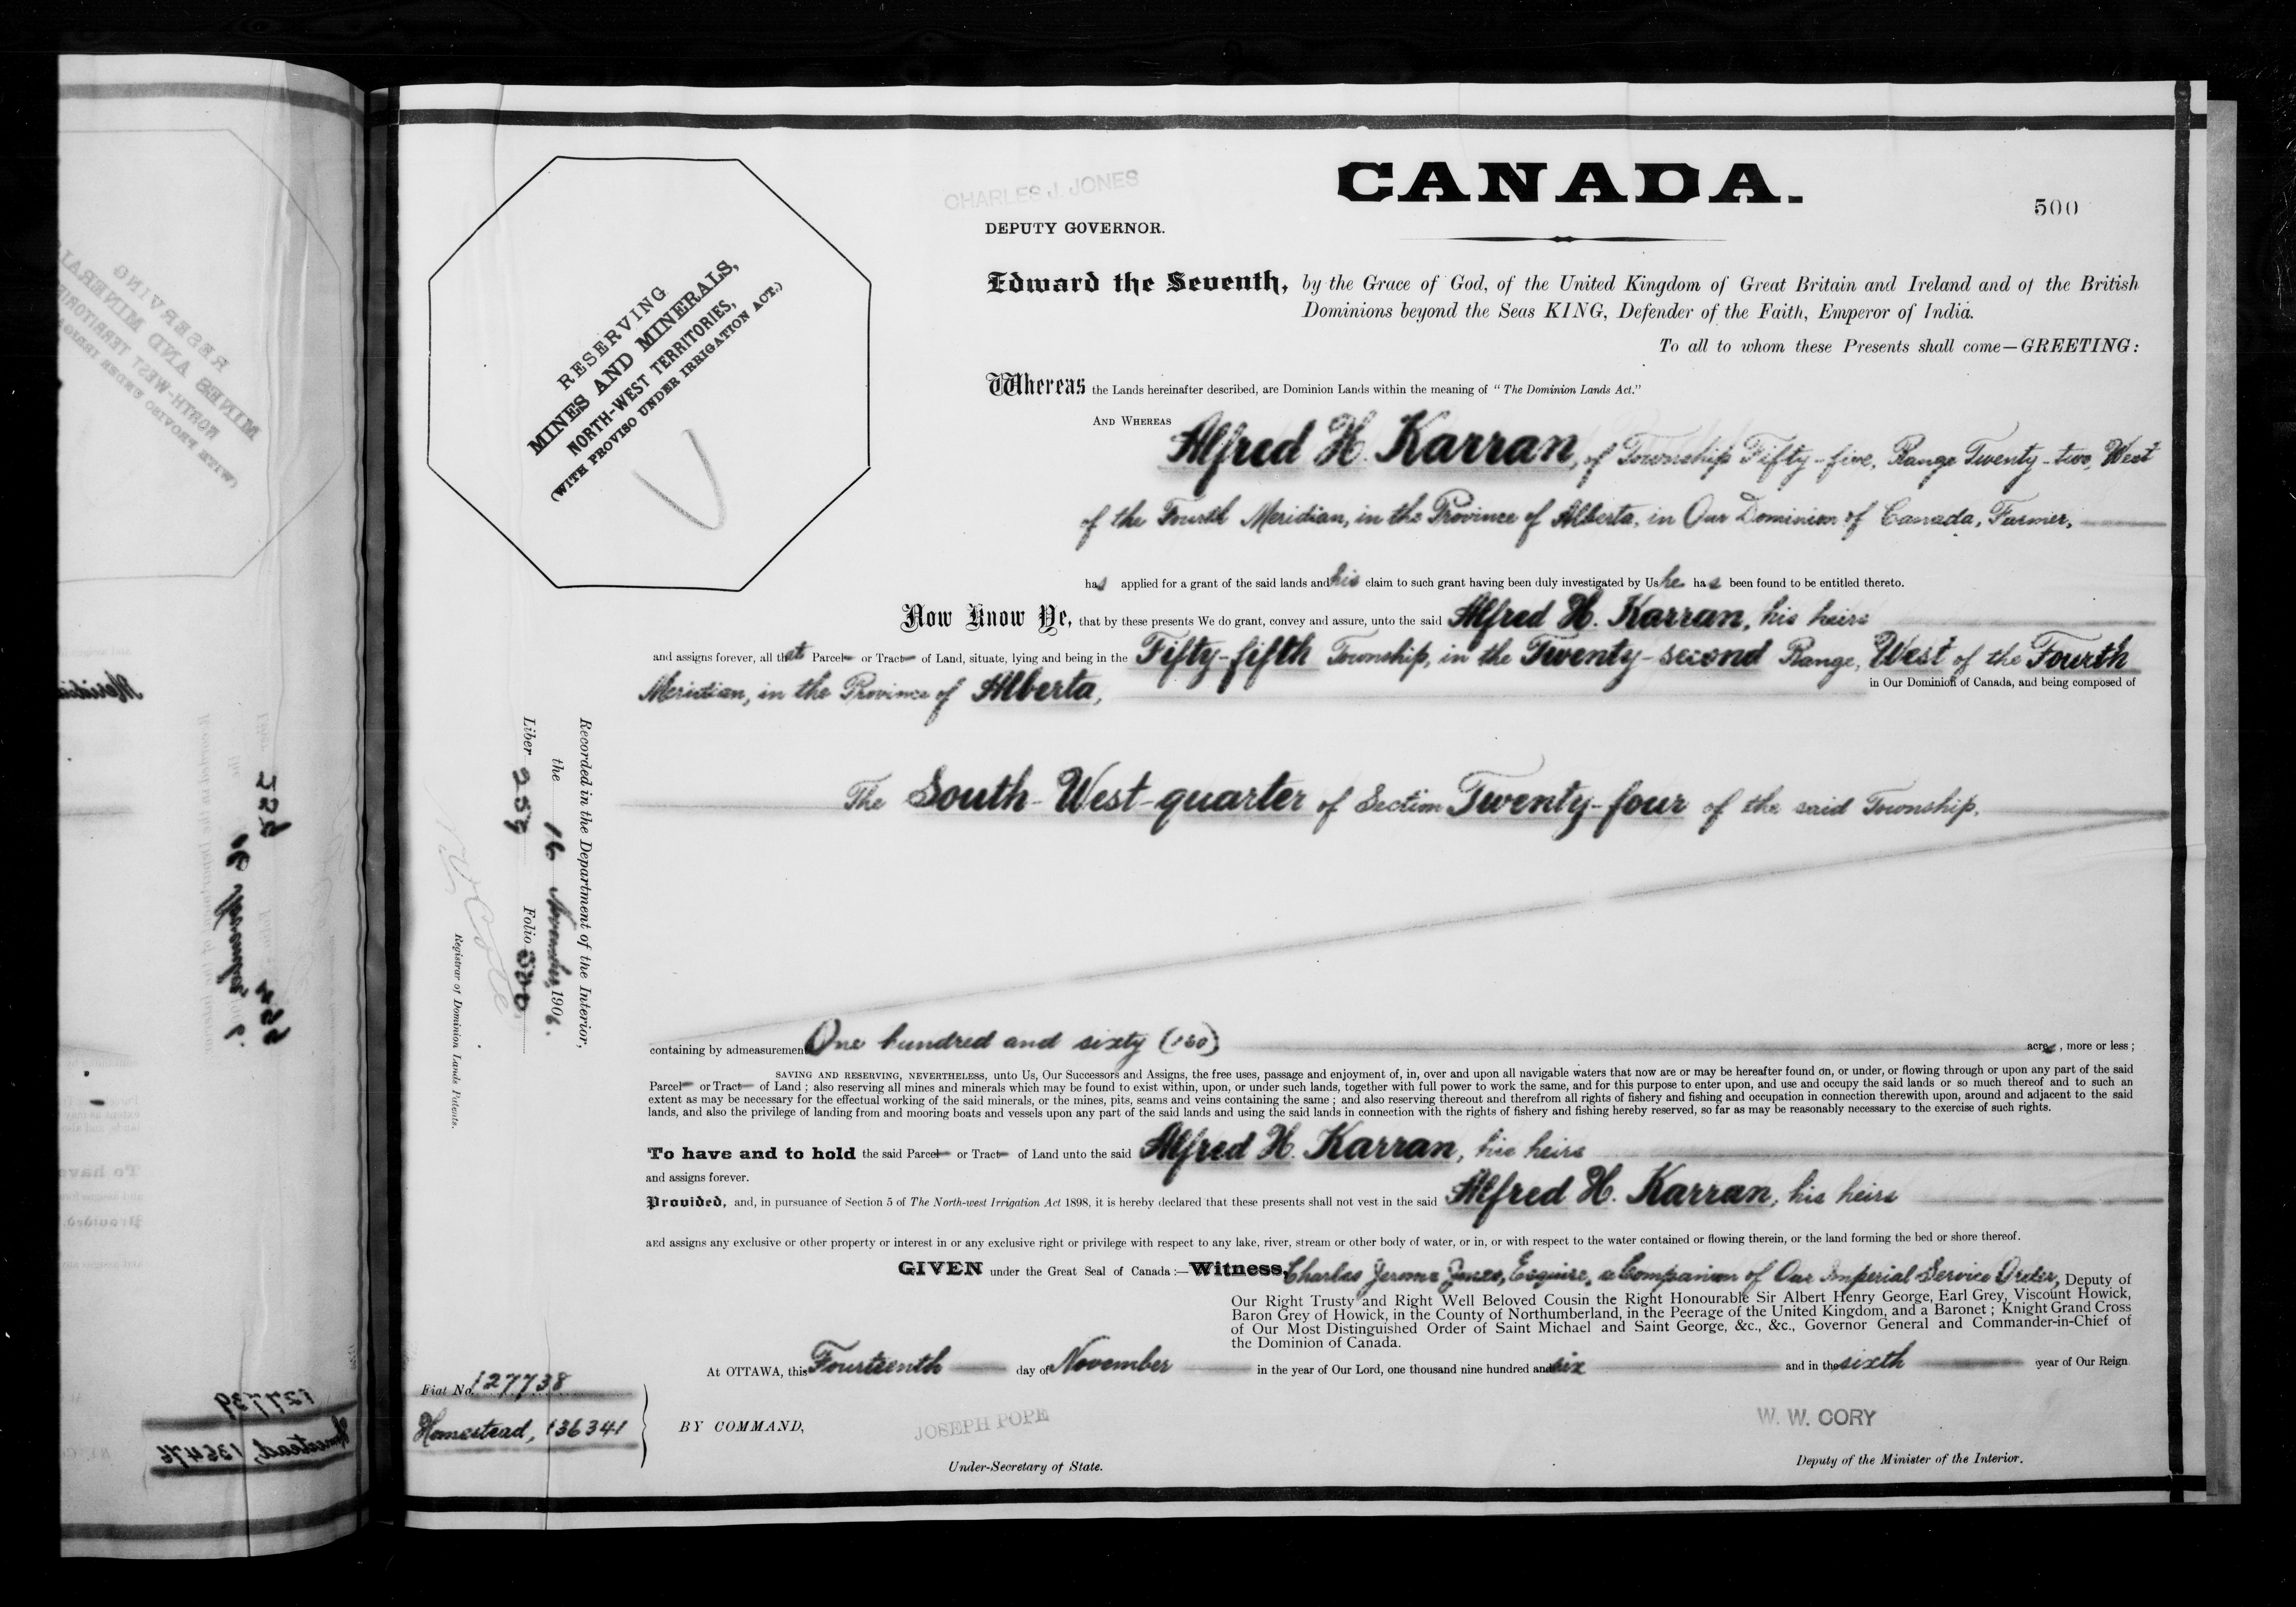 CHARLES J. JONES
CANADA.
500
DEPUTY GOVERNOR.
RESERVING
MINES AND MINERALS,
NORTH-WEST TERRITORIES,
(WITH PROVISO UNDER IRRIGATION ACT.)
Edward the Seventh, by the Grace of God, of the United Kingdom of Great Britain and Ireland and of the British
Dominions beyond the Seas KING, Defender of the Faith, Emperor of India.
To all to whom these Presents shall come—GREETING:
Whereas the Lands hereinafter described, are Dominion Lands within the meaning of "The Dominion Lands Act."
AND WHEREAS Alfred H. Karran, of Township Fifty-five, Range Twenty-two, West
of the Fourth Meridian, in the Province of Alberta, in Our Dominion of Canada, Farmer,
has applied for a grant of the said lands and his claim to such grant having been duly investigated by Us he has been found to be entitled thereto.
Now Know Ye, that by these presents We do grant, convey and assure, unto the said Alfred H. Karran, his heirs
and assigns forever, all that Parcel or Tract of Land, situate, lying and being in the Fifty-fifth Township, in the Twenty-second Range, West of the Fourth
Meridian, in the Province of Alberta, in Our Dominion of Canada, and being composed of
The South-West-quarter of Section Twenty-four of the said Township.
Recorded in the Department of the Interior,
the 16 November, 1906.
Liber 259 Folio 500
Registrar of Dominion Lands Patents.
containing by admeasurement One hundred and sixty (160) acres, more or less;
SAVING AND RESERVING, NEVERTHELESS, unto Us, Our Successors and Assigns, the free uses, passage and enjoyment of, in, over and upon all navigable waters that now are or may be hereafter found on, or under, or flowing through or upon any part of the said
Parcel or Tract of Land; also reserving all mines and minerals which may be found to exist within, upon, or under such lands, together with full power to work the same, and for this purpose to enter upon, and use and occupy the said lands or so much thereof and to such an
extent as may be necessary for the effectual working of the said minerals, or the mines, pits, seams and veins containing the same; and also reserving thereout and therefrom all rights of fishery and fishing and occupation in connection therewith upon, around and adjacent to the said
lands, and also the privilege of landing from and mooring boats and vessels upon any part of the said lands and using the said lands in connection with the rights of fishery and fishing hereby reserved, so far as may be reasonably necessary to the exercise of such rights.
To have and to hold the said Parcel or Tract of Land unto the said Alfred H. Karran, his heirs
and assigns forever.
Provided, and, in pursuance of Section 5 of The North-west Irrigation Act 1898, it is hereby declared that these presents shall not vest in the said Alfred H. Karran, his heirs
and assigns any exclusive or other property or interest in or any exclusive right or privilege with respect to any lake, river, stream or other body of water, or in, or with respect to the water contained or flowing therein, or the land forming the bed or shore thereof.
GIVEN under the Great Seal of Canada:—Witness, Charles Jerome Jones, Esquire, a Companion of Our Imperial Service Order, Deputy of
Our Right Trusty and Right Well Beloved Cousin the Right Honourable Sir Albert Henry George, Earl Grey, Viscount Howick,
Baron Grey of Howick, in the County of Northumberland, in the Peerage of the United Kingdom, and a Baronet; Knight Grand Cross
of Our Most Distinguished Order of Saint Michael and Saint George, &c., &c., Governor General and Commander-in-Chief of
the Dominion of Canada.
At OTTAWA, this Fourteenth day of November in the year of Our Lord, one thousand nine hundred and six and in the sixth year of Our Reign
Fiat No. 127738
Homestead, 136341
BY COMMAND,
JOSEPH POPE
W. W. CORY
Under-Secretary of State.
Deputy of the Minister of the Interior.